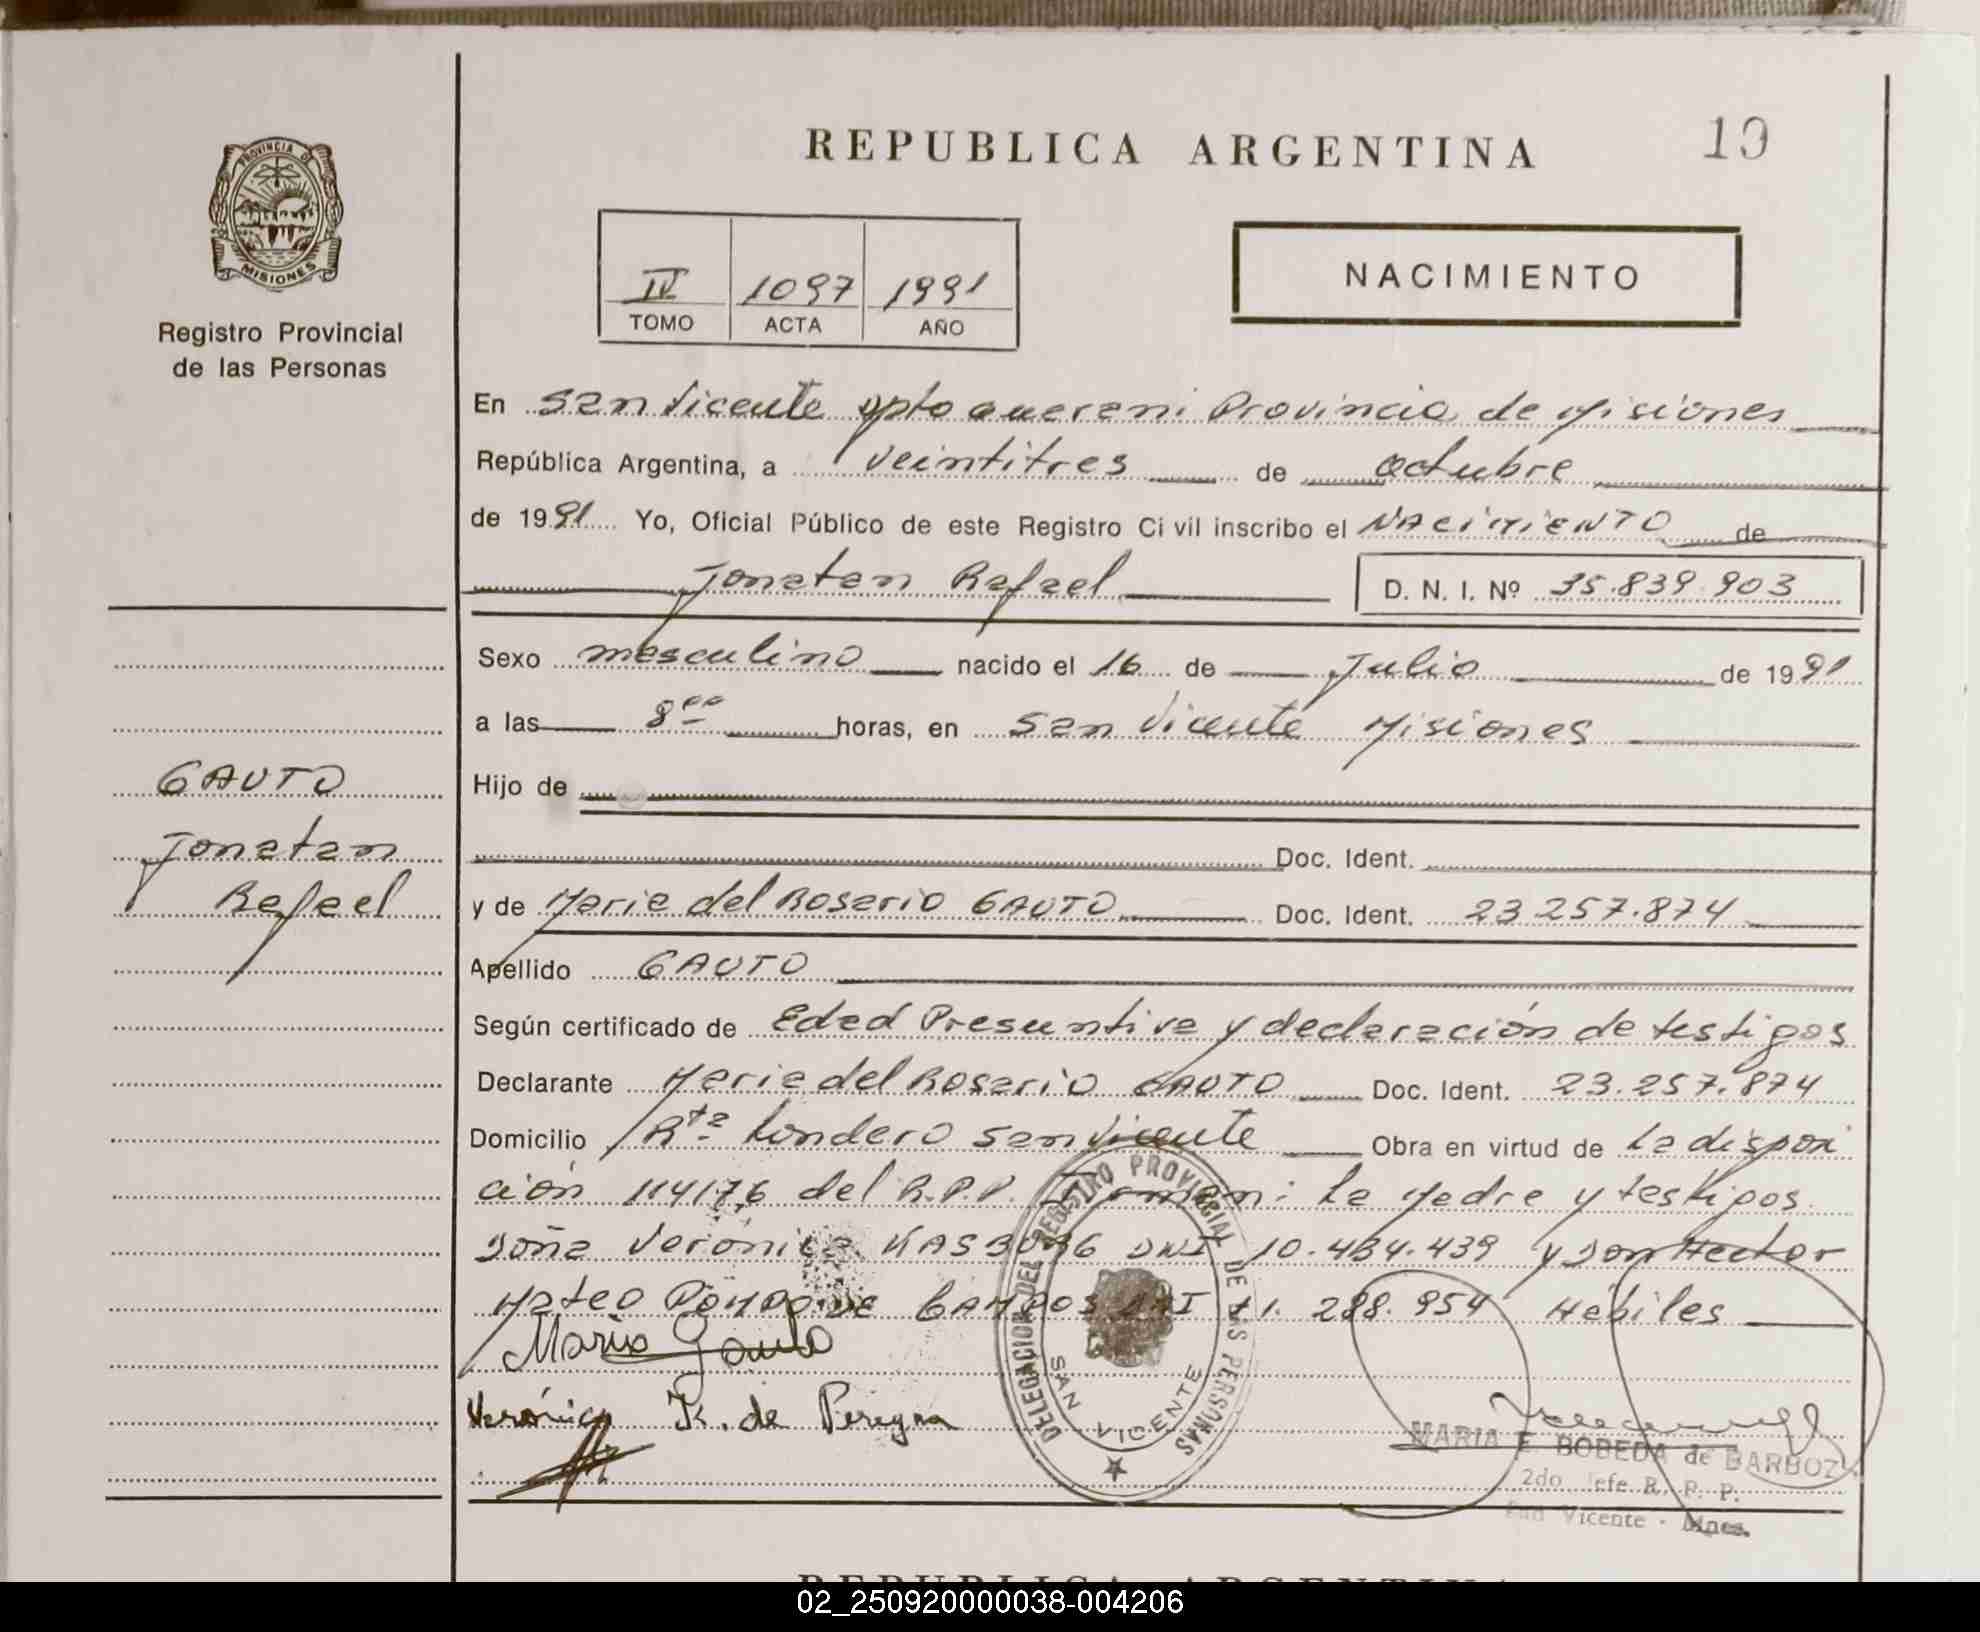 REPUBLICA ARGENTINA
19
PROVINCIA DE
MISIONES
Registro Provincial
de las Personas
IV 1097 1991
TOMO ACTA AÑO
NACIMIENTO
En San Vicente Dpto Guarani Provincia de Misiones
República Argentina, a veintitres de octubre
de 1991 Yo, Oficial Público de este Registro Civil inscribo el NACIMIENTO de
Jonatan Rafael D. N. I. Nº 35.839.903
Sexo masculino nacido el 16 de Julio de 1991
a las 8 00 horas, en San Vicente Misiones
Hijo de
Doc. Ident.
y de Maria del Rosario GAUTO Doc. Ident. 23.257.874
Apellido GAUTO
Según certificado de Edad Presuntiva y declaración de testigos
Declarante Maria del Rosario GAUTO Doc. Ident. 23.257.874
Domicilio Rta Londero San Vicente Obra en virtud de la disposi
ción 114/76 del R.P.P. Firman: La Madre y testigos
Doña Verónica KASBURG DNI 10.434.439 y Don Hector
Mateo DE CAMPOS DNI 11.288.954 Hábiles
GAUTO
Jonatan
Rafael
Maria Gauto
Verónica K. de Pereyra
DELEGACION DEL REGISTRO PROVINCIAL DE LAS PERSONAS
SAN VICENTE
MARIA E. BOBEDA de BARBOZA
2do Jefe R. P. P.
San Vicente - Mnes.
REPUBLICA ARGENTINA
02_250920000038-004206